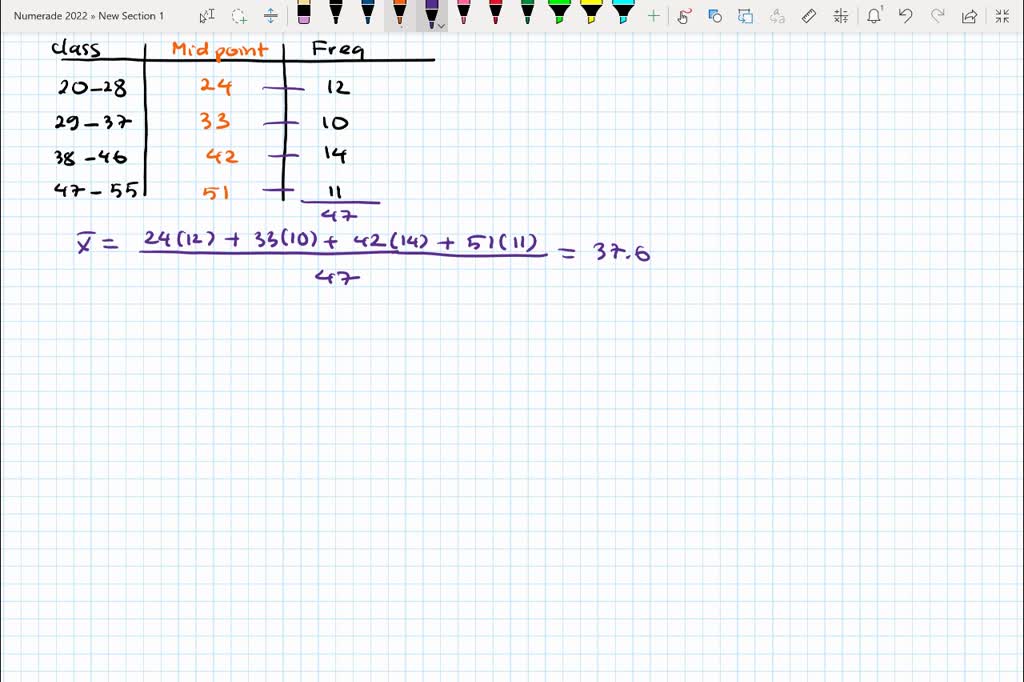 Numerade 2022 » New Section 1
class Midpoint Freq
20-28 24 12
29-37 33 10
38-46 42 14
47-55 51 11
47
x̄ = 24(12) + 33(10) + 42(14) + 51(11) = 37.6
47